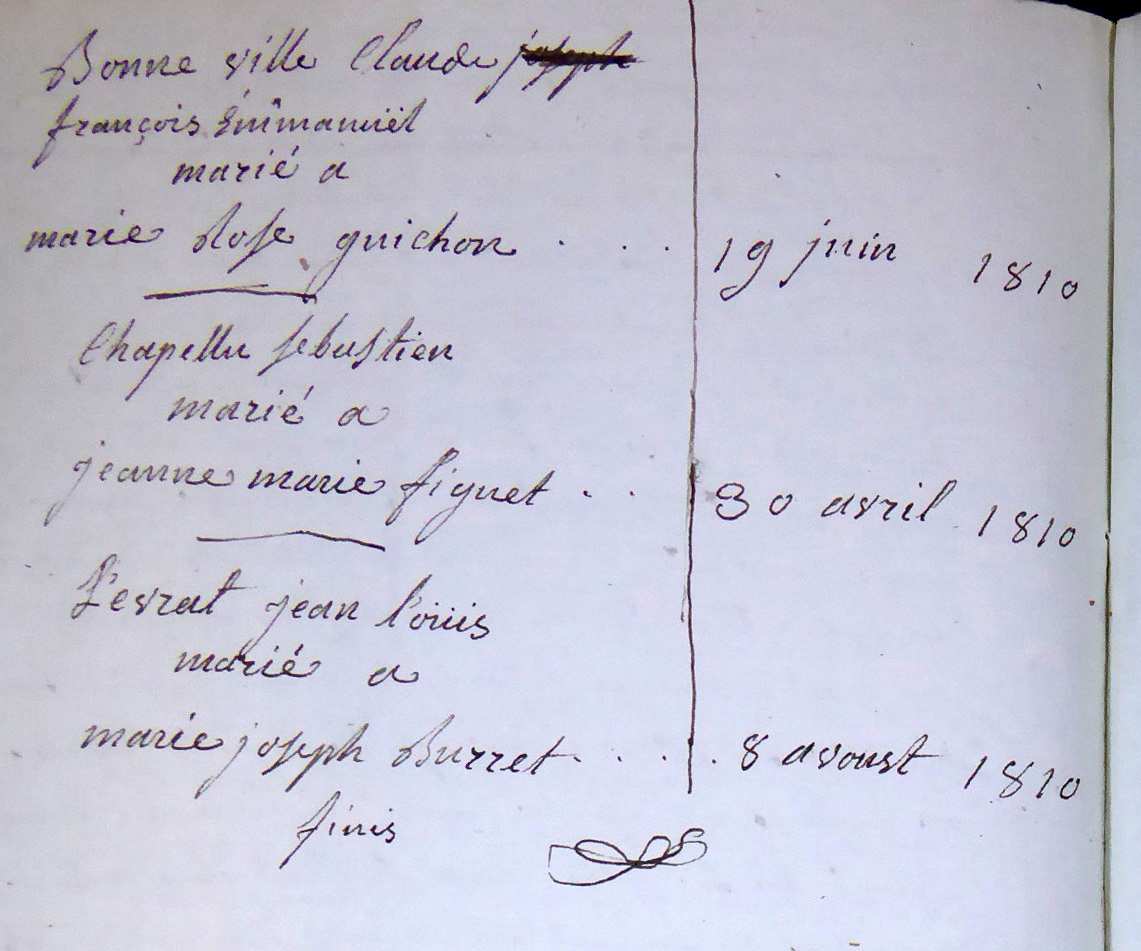 Bonne ville Claude joseph
françois Emmanuël
marié a
marie Rose guichon . . . . 19 juin 1810
Chapellu sebastien
marié a
jeanne marie figuet . . 30 avril 1810
L'evrat jean l'oüis
marié a
marie joseph Burret . . . . . 8 avoust 1810
finis